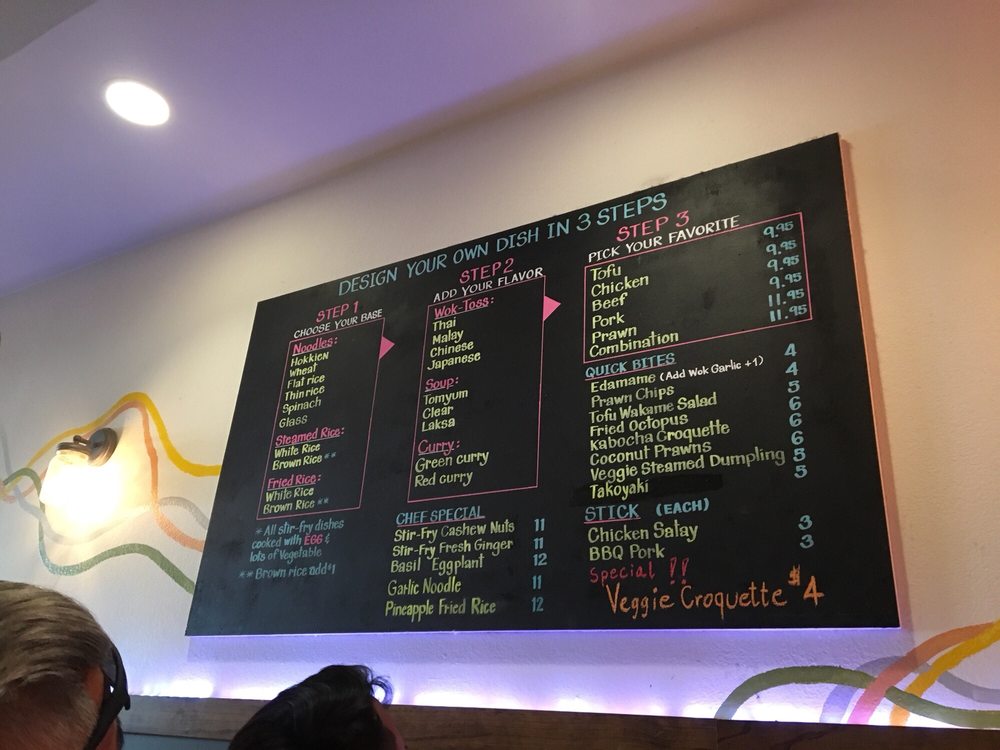 DESIGN YOUR OWN DISH IN 3 STEPS
STEP 1
CHOOSE YOUR BASE
Noodles:
Hokkien
Wheat
Flat rice
Thin rice
Spinach
Glass
Steamed Rice:
White Rice
Brown Rice **
Fried Rice:
White Rice
Brown Rice **
* All stir-fry dishes
cooked with EGG &
lots of Vegetable
** Brown rice add $1
STEP 2
ADD YOUR FLAVOR
Wok-Toss:
Thai
Malay
Chinese
Japanese
Soup:
Tomyum
Clear
Laksa
Curry:
Green curry
Red curry
CHEF SPECIAL
Stir-Fry Cashew Nuts 11
Stir-Fry Fresh Ginger 11
Basil Eggplant 12
Garlic Noodle 11
Pineapple Fried Rice 12
STEP 3
PICK YOUR FAVORITE
Tofu 9.95
Chicken 9.95
Beef 9.95
Pork 9.95
Prawn 11.95
Combination 11.95
QUICK BITES
Edamame (Add Wok Garlic +1) 4
Prawn Chips 4
Tofu Wakame Salad 5
Fried Octopus 6
Kabocha Croquette 6
Coconut Prawns 6
Veggie Steamed Dumpling 5
Takoyaki 5
STICK (EACH)
Chicken Satay 3
BBQ Pork 3
Special !!
Veggie Croquette $4